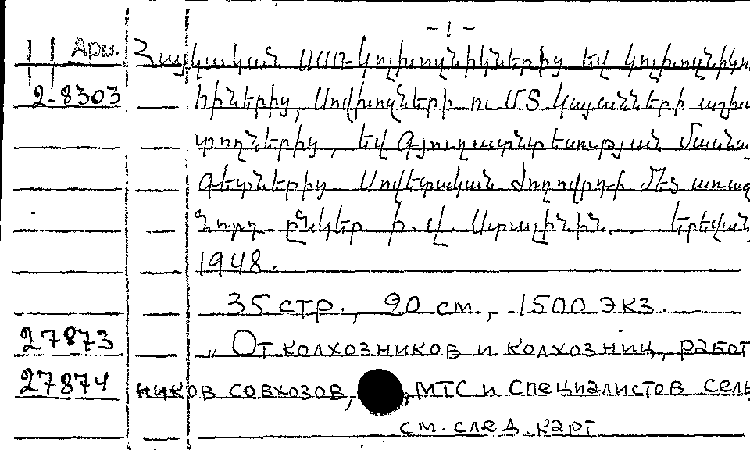 - 1 -
Арм. Հայկական ՍՍՌ կոլխոզնիկներից եվ կոլխոզնիկու
2-8303 հիներից, Սովխոզների ու ՄՏ կայանների աշխա
տողներից, եվ Գյուղատնտեսության մասնա
գետներից Սովետական ժողովրդի մեծ առաջ
նորդ ընկեր Ի. Վ. Ստալինին. Երեվան
1948.
35 стр., 20 см., 1500 экз.
27873 „От колхозников и колхозниц, работ
27874 ников совхозов, МТС и специалистов сель
см. след. карт